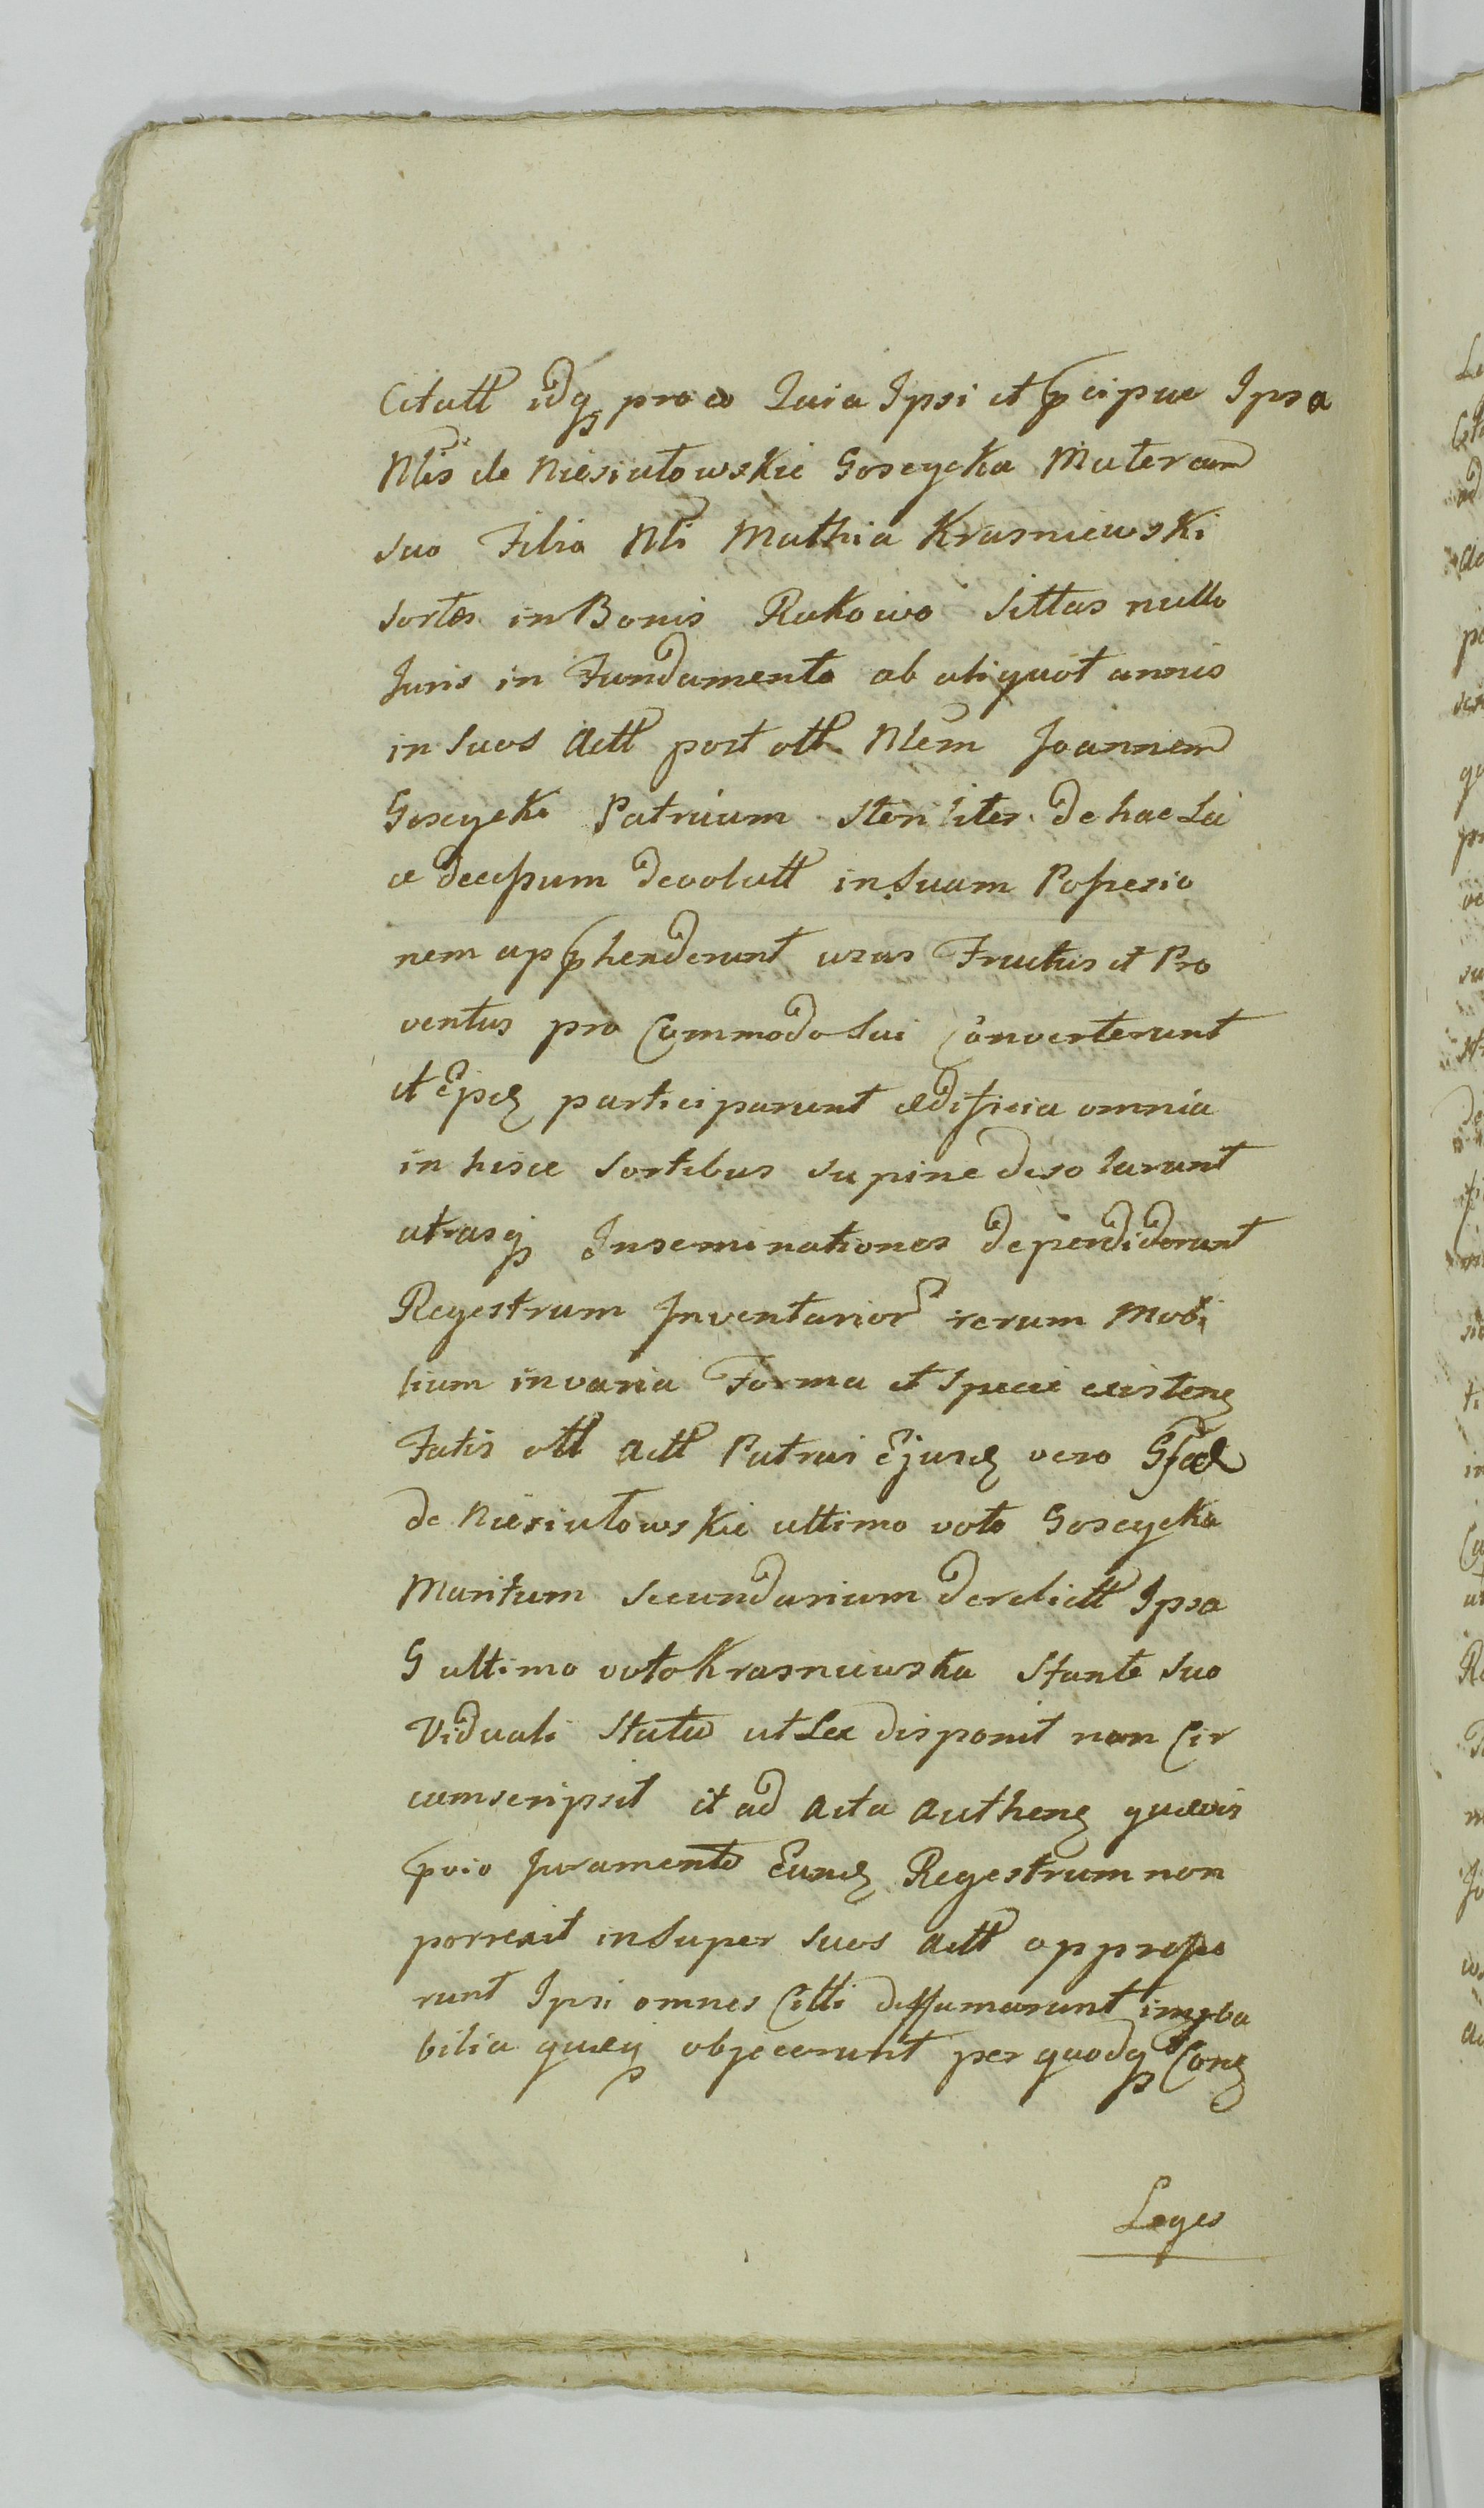 Citatt idq pro eo Quia Ipsi et pcipue Ipsa
Nlis de Niesiułowskie Goscycka Mater cum
suo Filio Nli Mathia Krasniewski
sortes in Bonis Rakowo Sittas nullo
Juris in Fundamento ab aliquot annis
in suos Actt post ott Nlem Joannem
Goscycki Patruum steriliter de hac Lu
ce decessum devolutt in suam Possesio
nem apphenderunt usus Fructus et Pro
ventus pro Commodo sui Converterunt
et participarunt ædificia omnia
in hisce sortibus supine desolarunt
atrasq Inseminationes deperdiderunt
Regestrum Inventarior rerum Mobi
lium in varia Forma et specie existen
Fatis ott Actt Patrui Ejusd vero
de Niesiułowskie ultimo voto Goscycka
Maritum secundarium derelictt Ipsa
G ultimo voto Krasniewska stante suo
Viduali statu ut Lex disponit non Cir
cumscripsit et ad Acta Authen quævis
pvio Juramento Eund Regestrum non
porrexit insuper suos Actt oppresse
runt Ipsi omnes Citti diffamarunt improba
bilia quæq objecerunt per quodq Con
Leges